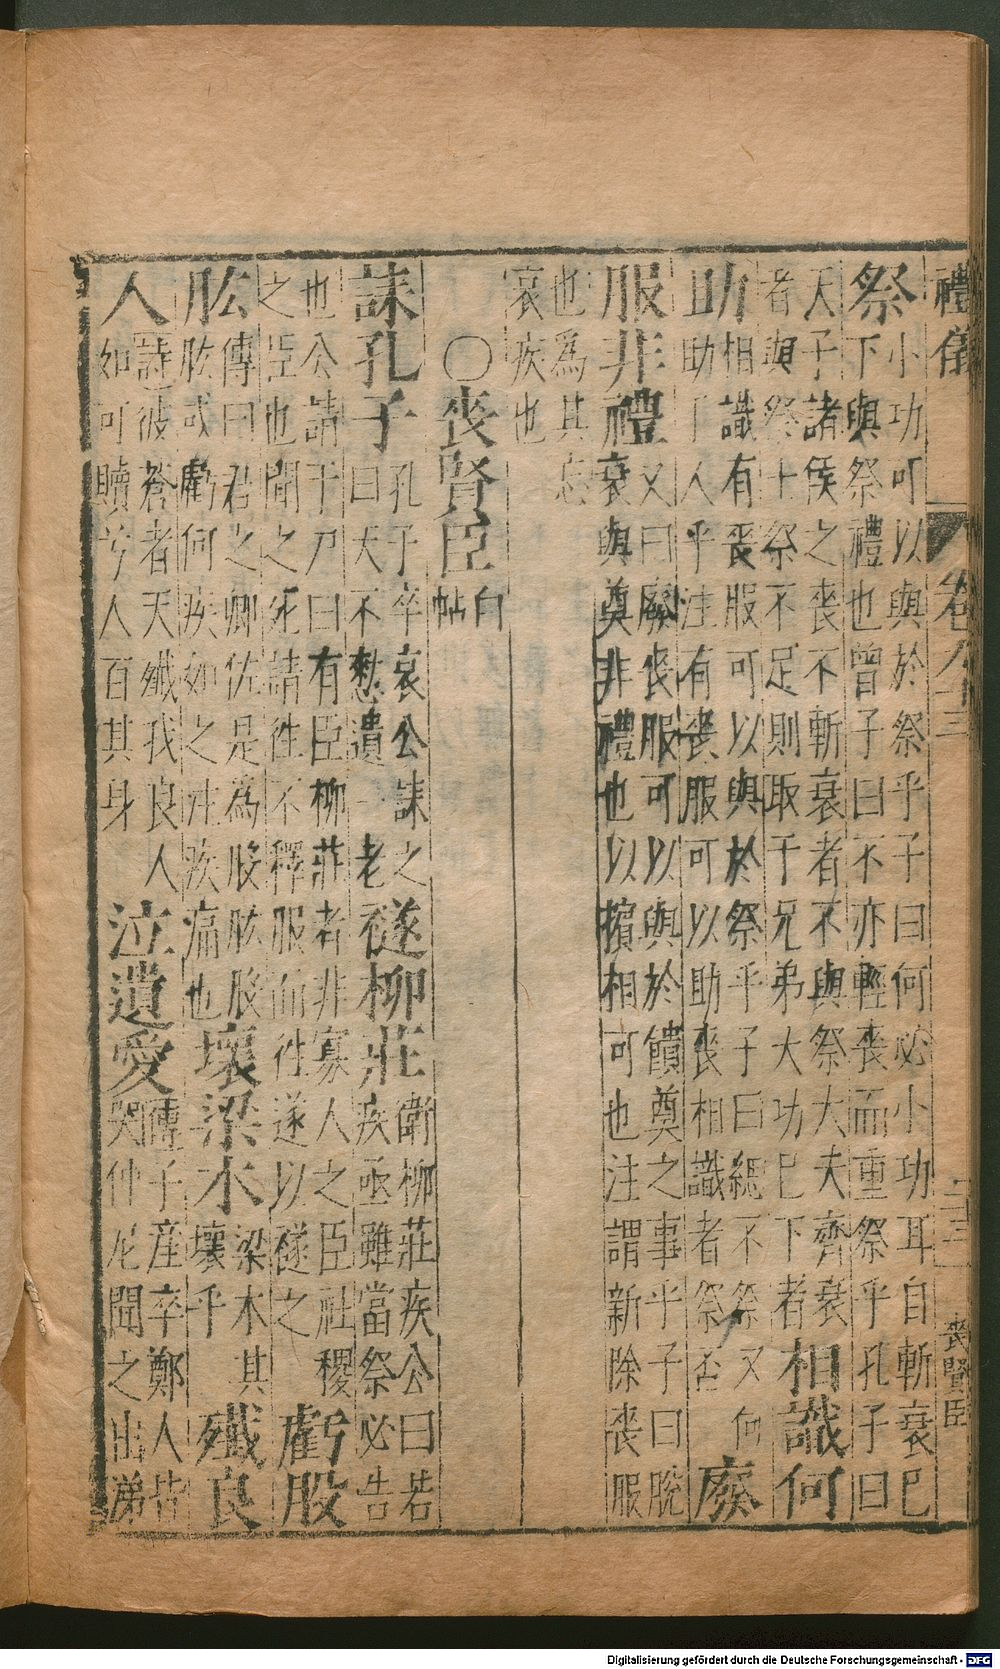 禮儀 卷九十三 二三 喪賢臣
祭小功可以與於祭乎子曰何必小功耳自斬衰已
下與祭禮也曾子曰不亦輕喪而重祭乎孔子曰
天子諸侯之喪不斬衰者不與祭大夫齊衰
者與祭士祭不足則取于兄弟大功已下者相識何
助相識有喪服可以與於祭乎子曰緦不祭又何
助丁人乎注有喪服可以助喪相識者祭否廢
服非禮又曰廢喪服可以與於饋奠之事乎子曰脫
衰與奠非禮也以擯相可也注謂新除喪服
也為其忘
哀疾也
○喪賢臣白帖
誄孔子孔子卒哀公誄之
曰天不憖遺一老襚柳莊衛柳莊疾公曰若
疾亟雖當祭必告
也公請于尸曰有臣柳莊者非寡人之臣社稷
之臣也聞之死請往不釋服而往遂以襚之虧股
肱傳曰君之卿佐是為股肱股
肱或虧何疾如之注疾痛也壞梁木梁木其
壞乎殲良
人詩彼蒼者天殲我良人
如可贖兮人百其身泣遺愛傳子產卒鄭人皆
哭仲尼聞之出涕
Digitalisierung gefördert durch die Deutsche Forschungsgemeinschaft - DFG